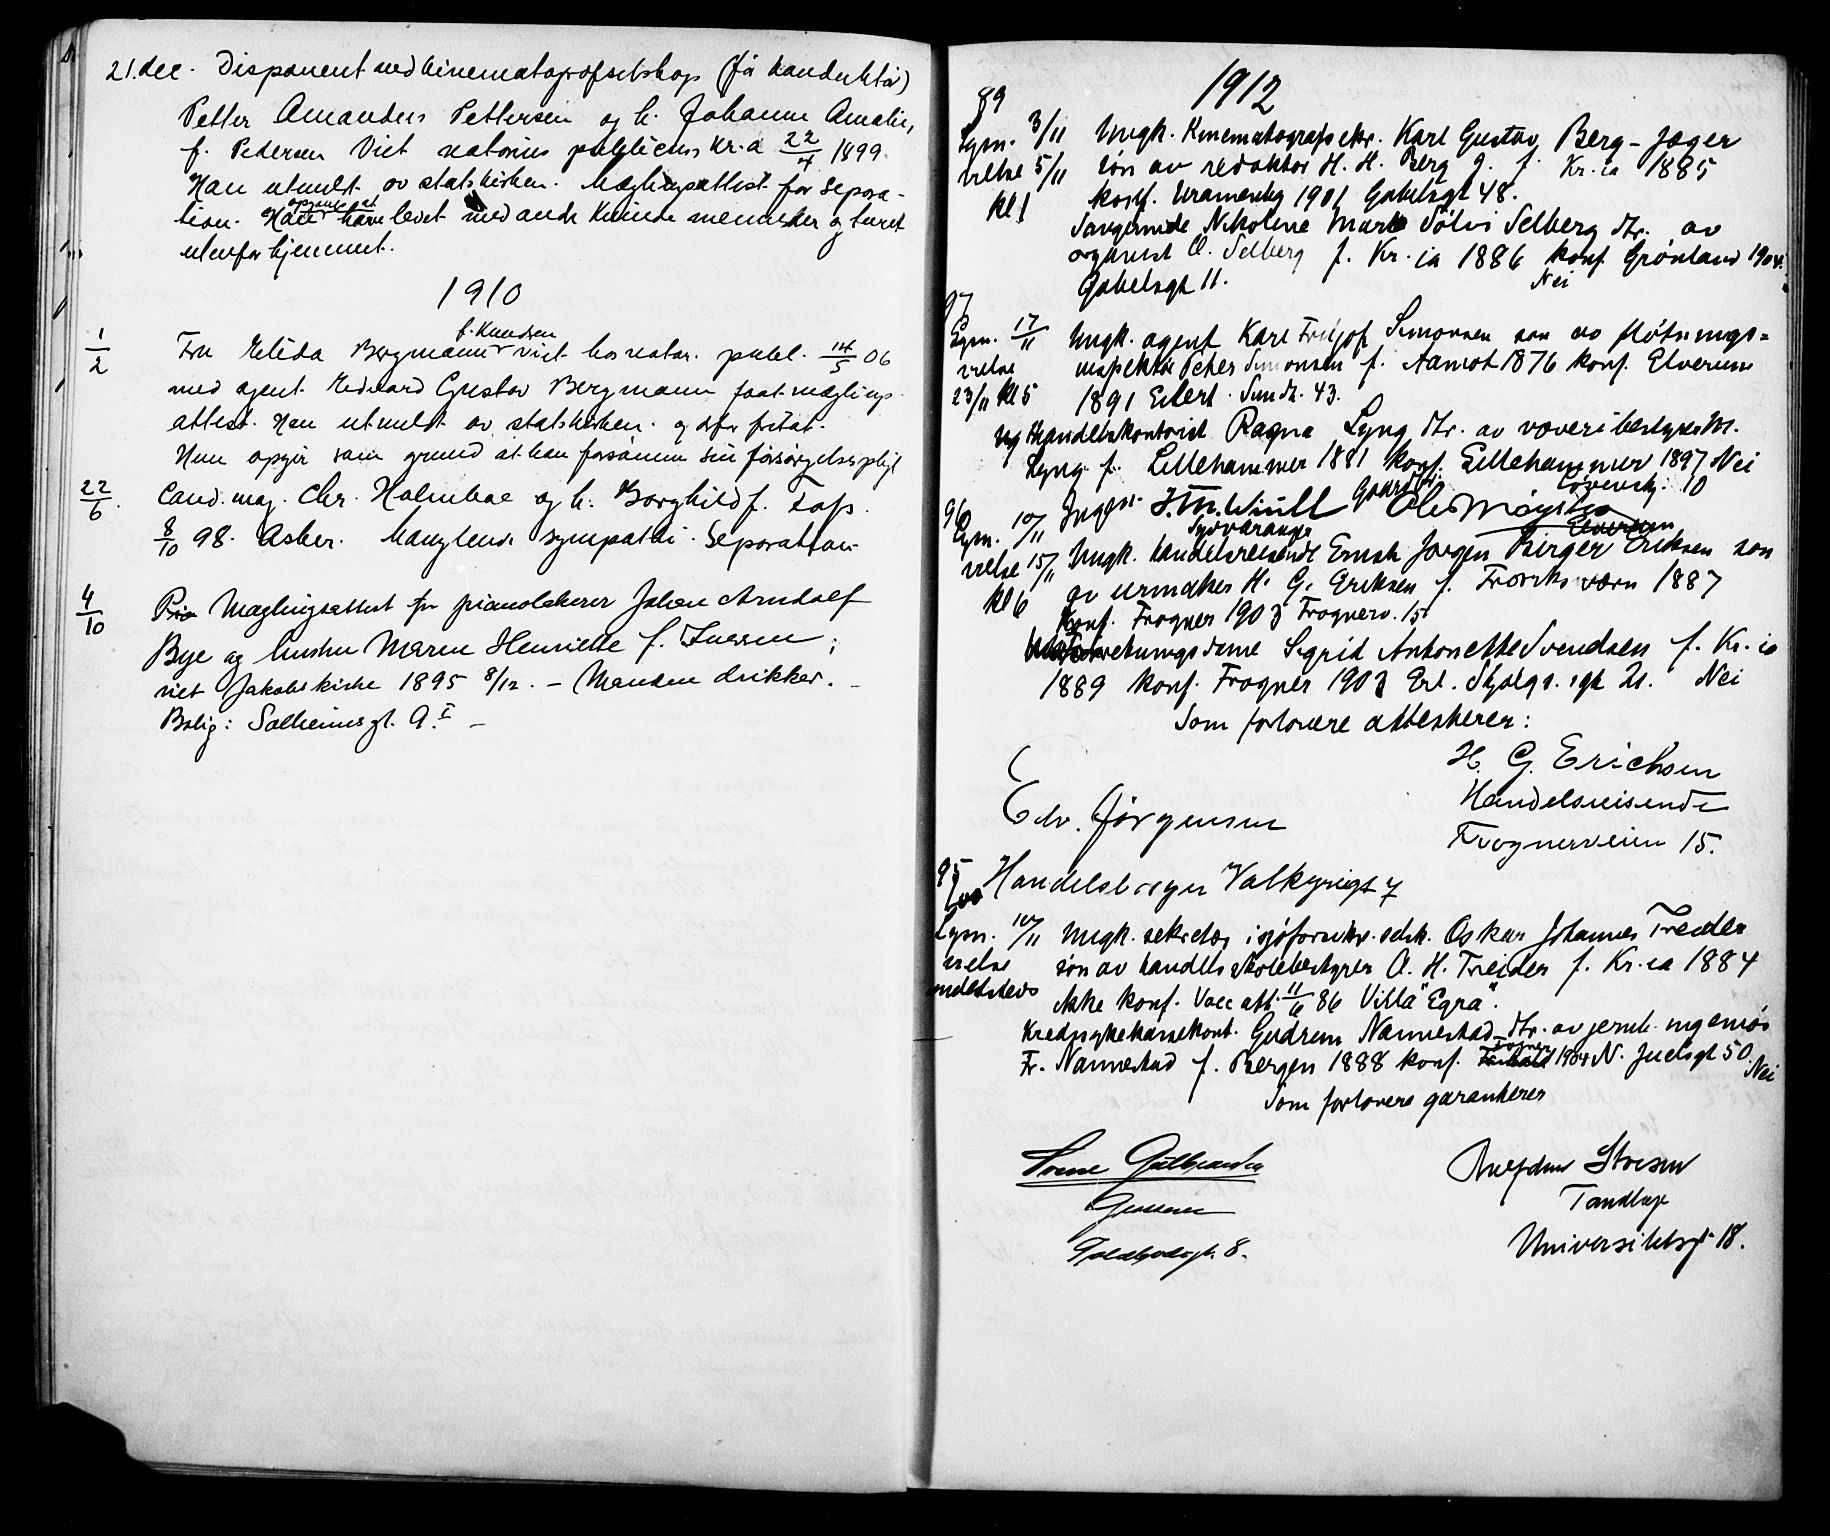 21. dec. Disponent ved kinematografselskap (før konduktør)
Petter Amandus Pettersen og h. Johanne Amalie,
f. Pedersen Viet notarius publicus Kr.a 22/4 1899.
Han utmeldt av statskirken. Mæglingsattest for separa-
tion. Han opgives at have levet med andre kvindemennesker og turet
utenfor hjemmet.
1910
1/2 Fru Elida Bergmann f. Knudsen viet hos notar. publ. 14/5 06
med agent Edvard Gustav Bergmann faat mæglings
attest. Han utmeldt av statskirken. og derfor fritat.
Hun opgir som grund at han forsømm sin forsørgelsespligt
22/6. Cand. mag. Chr. Holmboe og h. Borghild f. Taps.
8/10 98. Asker. Manglende sympathi. Separation
4/10 Pia Mæglingsattest for pianolakerer Johan Arndolf
Bye og hustru Maren Henriette f. Iversen;
viet Jakobs kirke 1895 8/12. – Manden drikker. –
Bolig: Solheimsgt. 9. I –
1912
89
Lysn. 3/11 Ungk. Kinematografseier. Karl Gustav Berg-Jæger
vielse 5/11 søn av redaktør H. H. Berg J. f. Kr.ia 1885
kl 1 konf. Uranienbg 1901 Gabelsgt 48.
Sangerinde Nikoline Marie Sølvi Selberg dtr. av
organist O. Selberg f. Kr.ia 1886 konf Grønland 1904.
Gabelsgt 11. Nei
97
Lysn. 17/11 Ungk. agent Karl Fritjof Simonsen søn av fløtnings=
vielse inspektør Peter Simonsen f. Aamot 1876 konf. Elverum
23/11 kl 5 1891 Eilert Sundts. 43.
og Handelskontorist Ragna Lyng dtr. av væveribestyrer M.
Lyng f. Lillehammer 1881 konf. Lillehammer 1897 Nei
Løvensk. 10
Inger. J. M. Wiull Gaardbr. Ole Møystad
Sydvaranger Elverum
96
Lysn. 10/11 Ungk. handelsreisende Ernst Jørgen Birger Eriksen søn
vielse 15/11 av urmaker H. G. Eriksen f. Fredriksværn 1887
kl 6 Konf. Frogner 1903 Frognerv. 15
forretningsdame Sigrid Antonette Svendsen f. Kr.ia
1889 konf. Frogner 1903 Erl. Skjalgs.sgt 21. Nei
Som forlovere attesterer:
H. G. Ericksen
Handelsreisende
Edv. Jørgensen
Frognerveien 15.
95
Handelsborger Valkyriegt 7
Lysn. 10/11 Ungk. sekretær i sjøforsikr.selsk. Oskar Johannes Treider
vielse søn av handelsskolebestyrer O. H. Treider f. Kr.ia 1884
andetsteds ikke konf. Vacc att. 11/6 86 Villa "Egra".
Kredssykekassekont. Gudrun Nannestad dtr. av jernb. ingeniør
Fr. Nannestad f. Bergen 1888 konf. Frogner 1904 N. Juelsgt 50. Nei
Som forlovere garanterer
Sverre Gulbrandsen
Storsen
Tandlæge
8.
Universitetsgt 18.